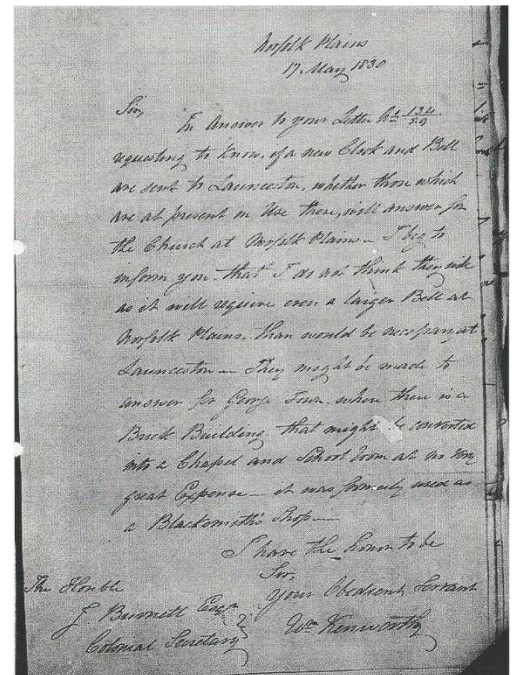 Norfolk Plains
17 May 1830
Sir,
In Answer to your Letter No 134/29
requesting to know, if a new Clock and Bell
are sent to Launceston, whether those which
are at present in Use there, will answer for
the Church at Norfolk Plains – I beg to
inform you that I do not think they will
as it will require even a larger Bell at
Norfolk Plains, than would be necessary at
Launceston – They might be made to
answer for George Town, where there is a
Brick Building, that might be converted
into a Chapel and School Room at no very
great Expense – it was formerly used as
a Blacksmith's Shop –
I have the honor to be
Sir,
Your Obedient Servant
Wm Kenworthy
The Honble
J Burnett Esqr
Colonial Secretary